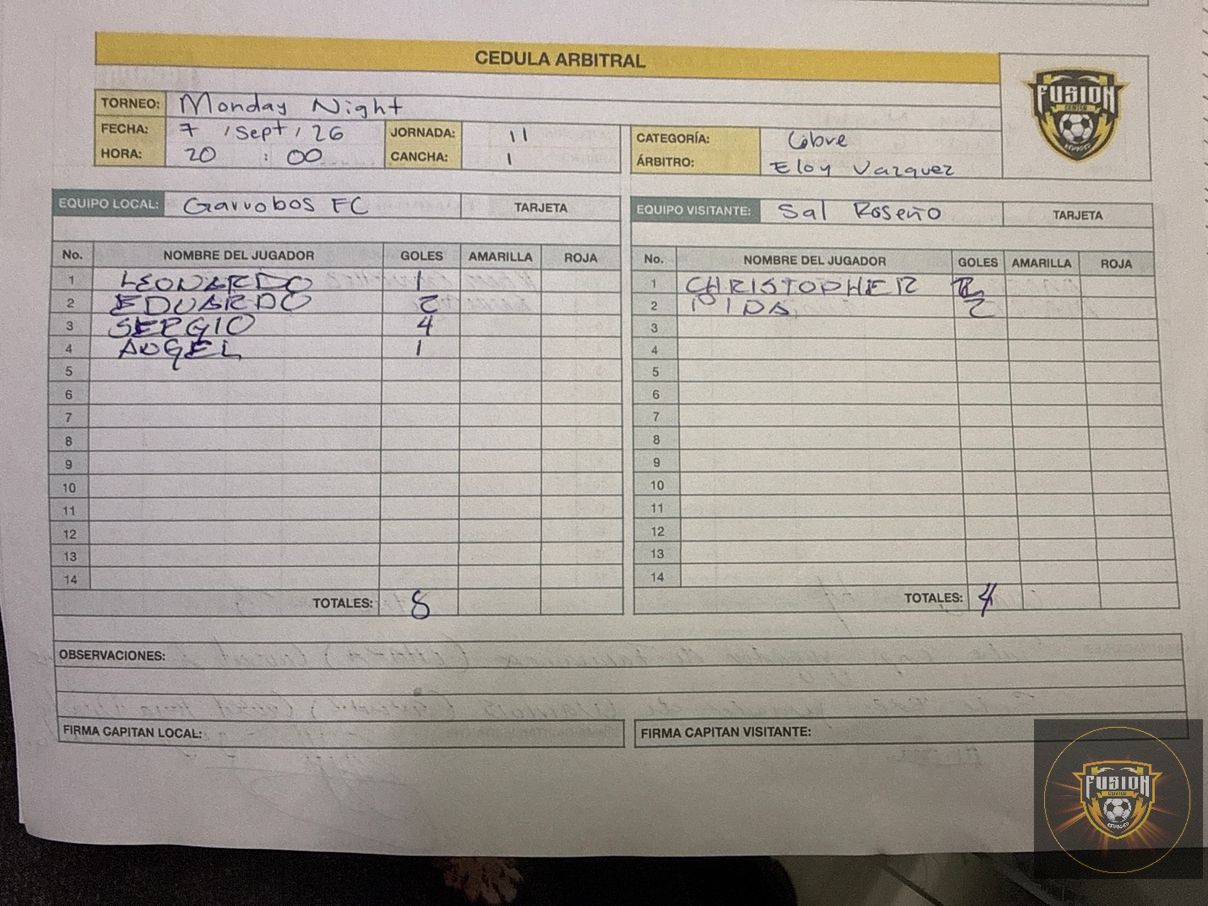 CEDULA ARBITRAL
FUSION
CENTER
TORNEO: Monday Night
FECHA: 7 / Sept / 26 JORNADA: 11
HORA: 20 : 00 CANCHA: 1
CATEGORÍA: Libre
ÁRBITRO: Eloy Vazquez
EQUIPO LOCAL: Garrobos FC TARJETA
EQUIPO VISITANTE: Sal Roseño TARJETA
No. NOMBRE DEL JUGADOR GOLES AMARILLA ROJA
1 LEONARDO 1
2 EDUARDO 2
3 SERGIO 4
4 ANGEL 1
5
6
7
8
9
10
11
12
13
14
TOTALES: 8
No. NOMBRE DEL JUGADOR GOLES AMARILLA ROJA
1 CHRISTOPHER
2 2
3
4
5
6
7
8
9
10
11
12
13
14
TOTALES: 4
OBSERVACIONES:
FIRMA CAPITAN LOCAL:
FIRMA CAPITAN VISITANTE:
FUSION
CENTER